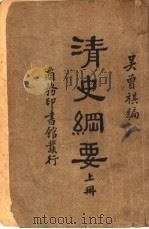 吴曾祺編
清史綱要
上冊
商務印書館發行